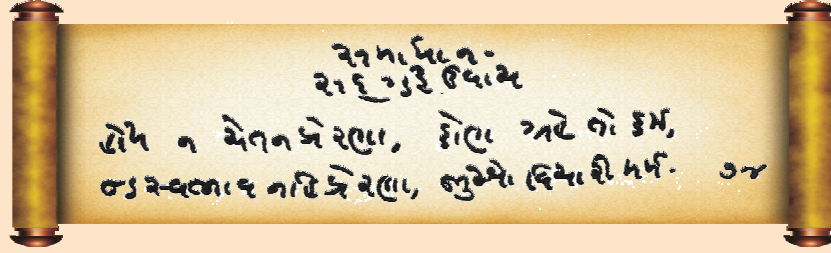 સમાધાન-
સદ્‌ગુરુ ઉવાચ
હોય ન ચેતન પ્રેરણા, કોણ ગ્રહે તો કર્મ,
જડસ્વભાવ નહિ પ્રેરણા, જુઓ વિચારી મર્મ. ૭૪